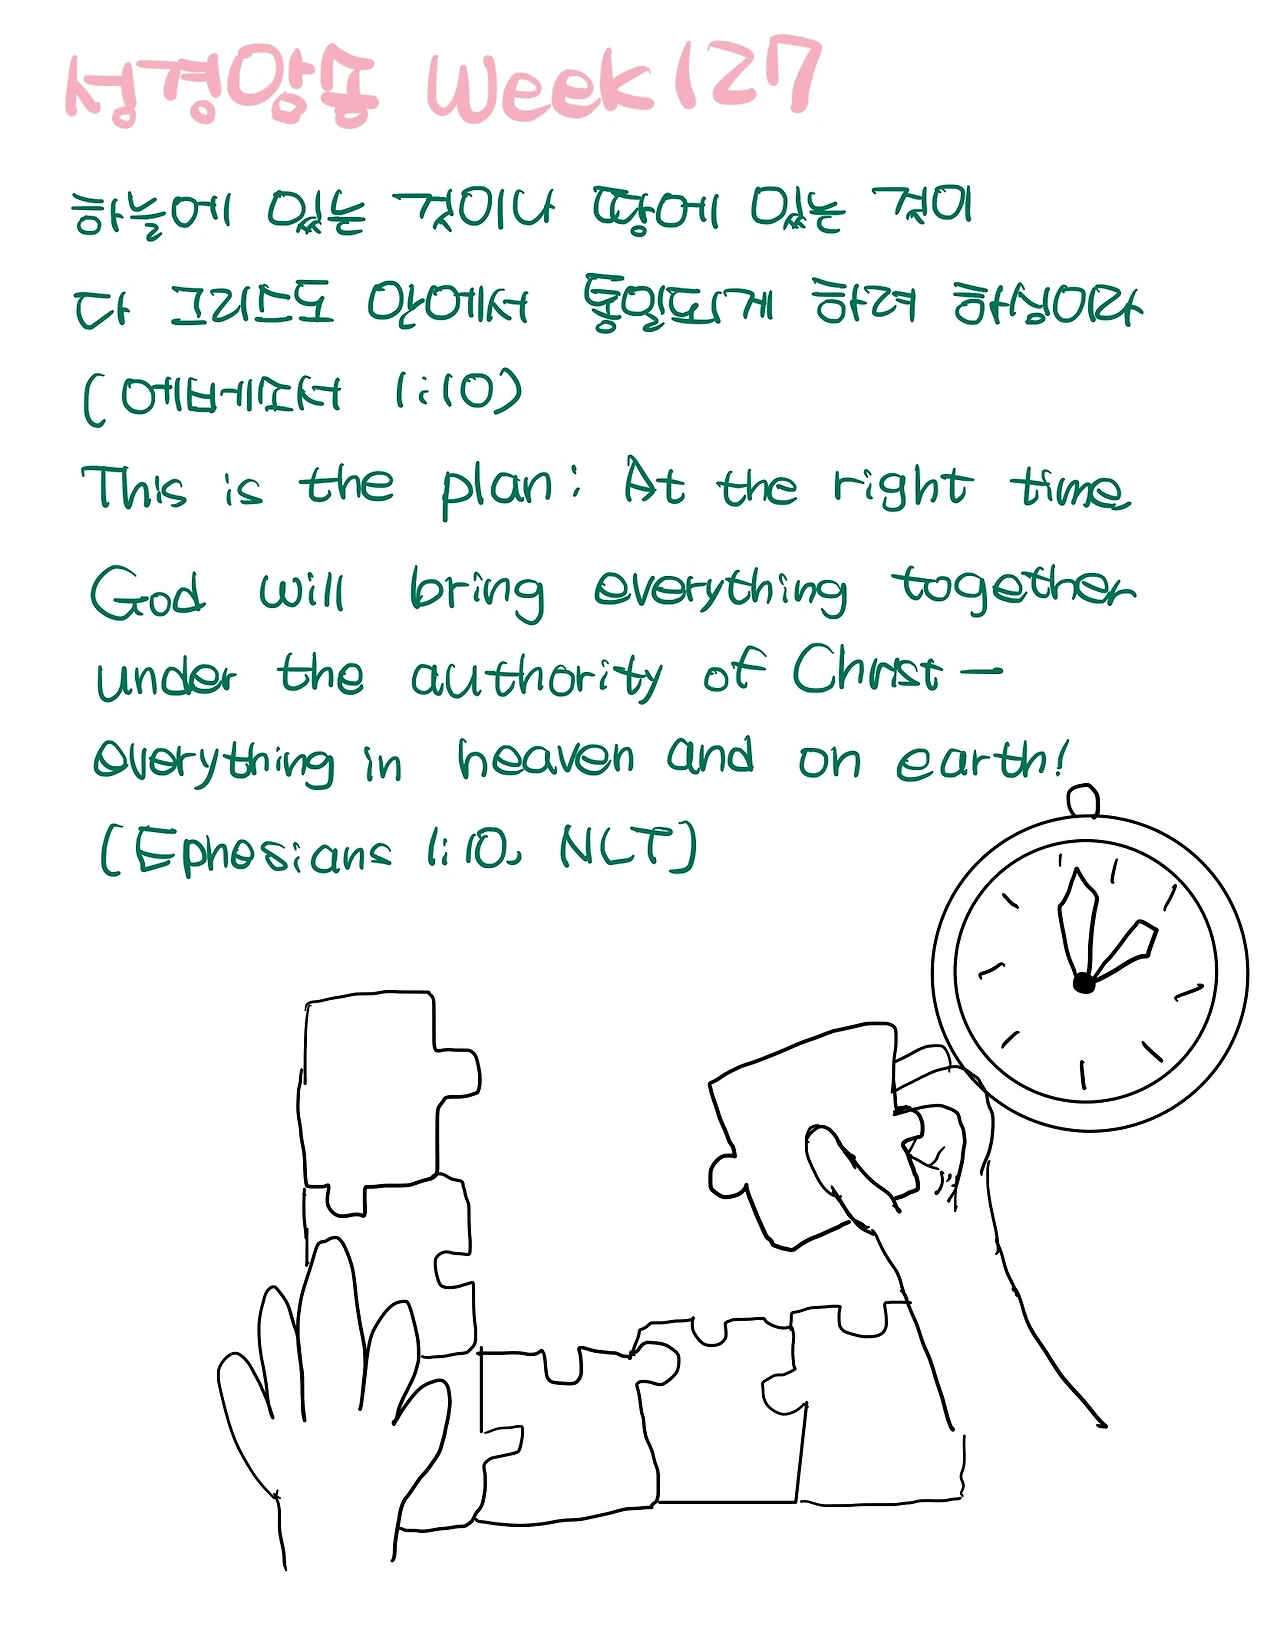 성경암송 Week 127
하늘에 있는 것이나 땅에 있는 것이
다 그리스도 안에서 통일되게 하려 하심이라
(에베소서 1:10)
This is the plan: At the right time
God will bring everything together
under the authority of Christ —
everything in heaven and on earth!
(Ephesians 1:10, NLT)